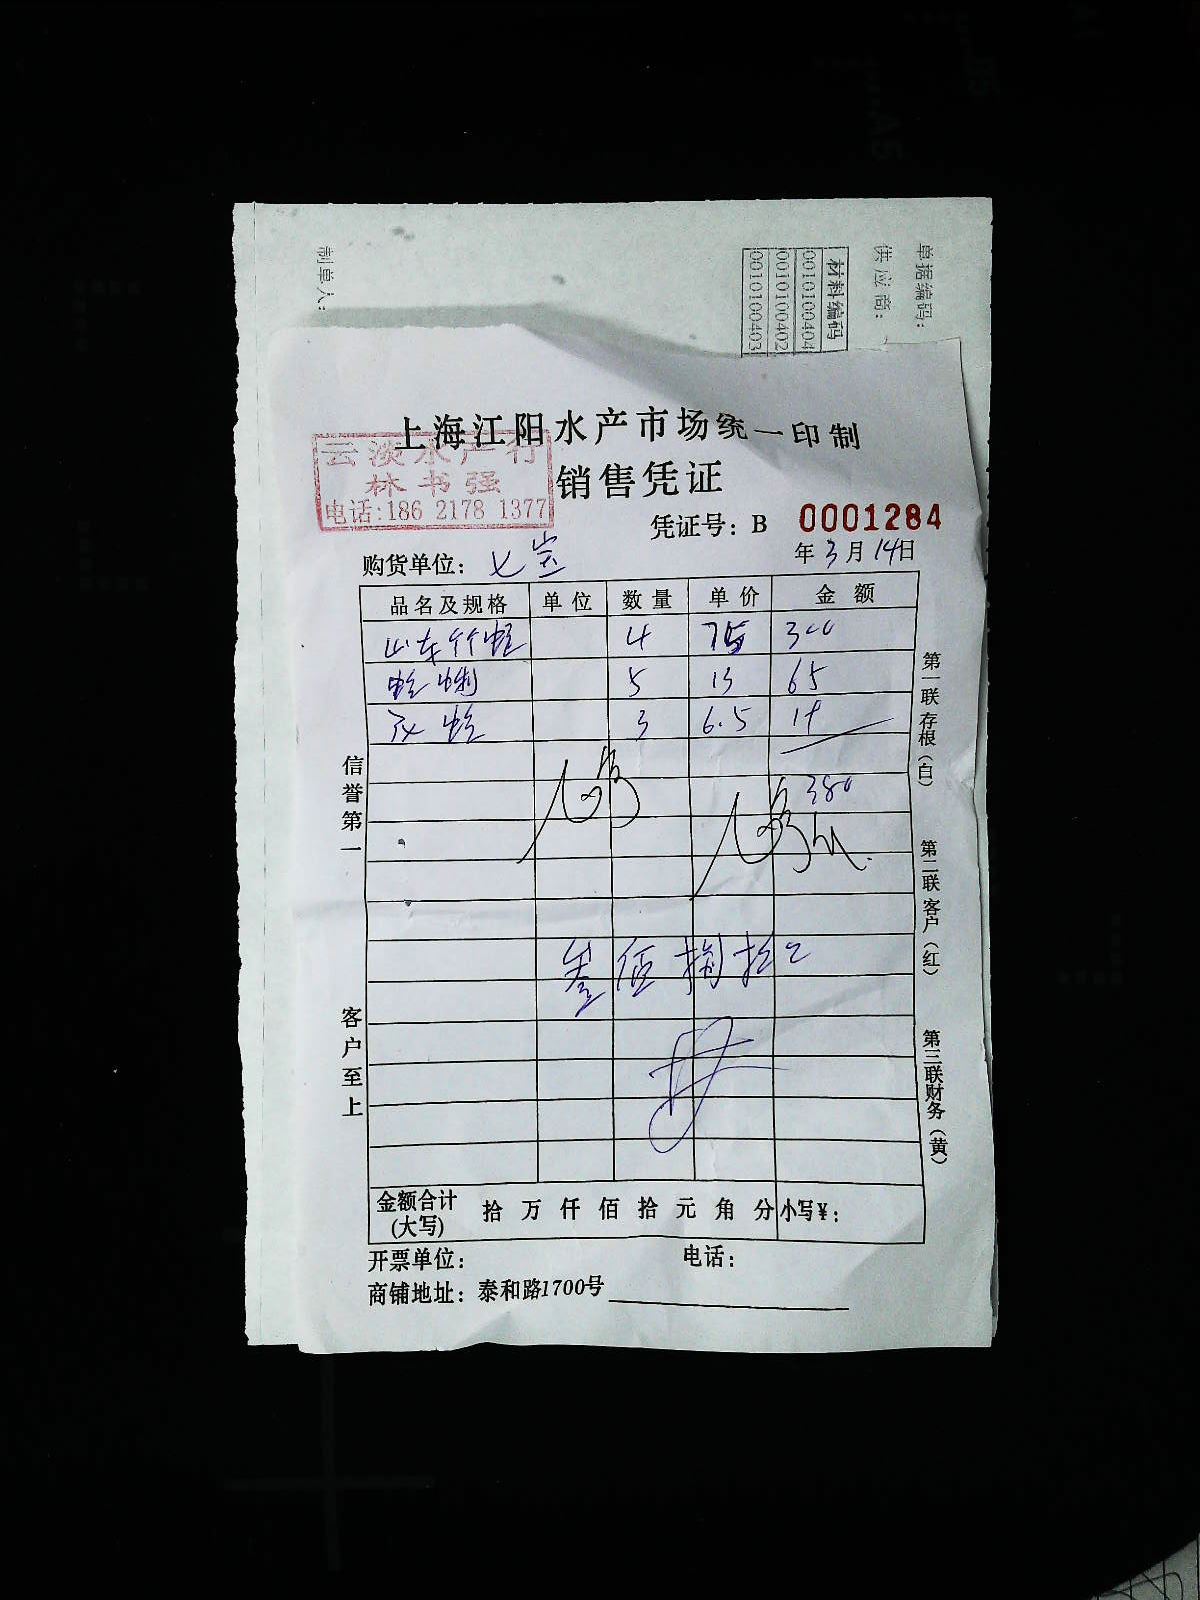 单据编码:
供应商:
材料编码
0010100404
0010100402
0010100403
制单人:
上海江阳水产市场统一印制
云淡水产行
林书强
电话:186 2178 1377
销售凭证
凭证号: B 0001284
购货单位: 七宝 年 3 月 14 日
品名及规格 单位 数量 单价 金额
山东竹蛏 4 75 300
蛤蜊 5 13 65
花蛤 3 6.5 19
380
叁佰捌拾
金额合计(大写) 拾 万 仟 佰 拾 元 角 分 小写¥:
开票单位: 电话:
商铺地址: 泰和路1700号
信誉第一
客户至上
第一联存根(白)
第二联客户(红)
第三联财务(黄)